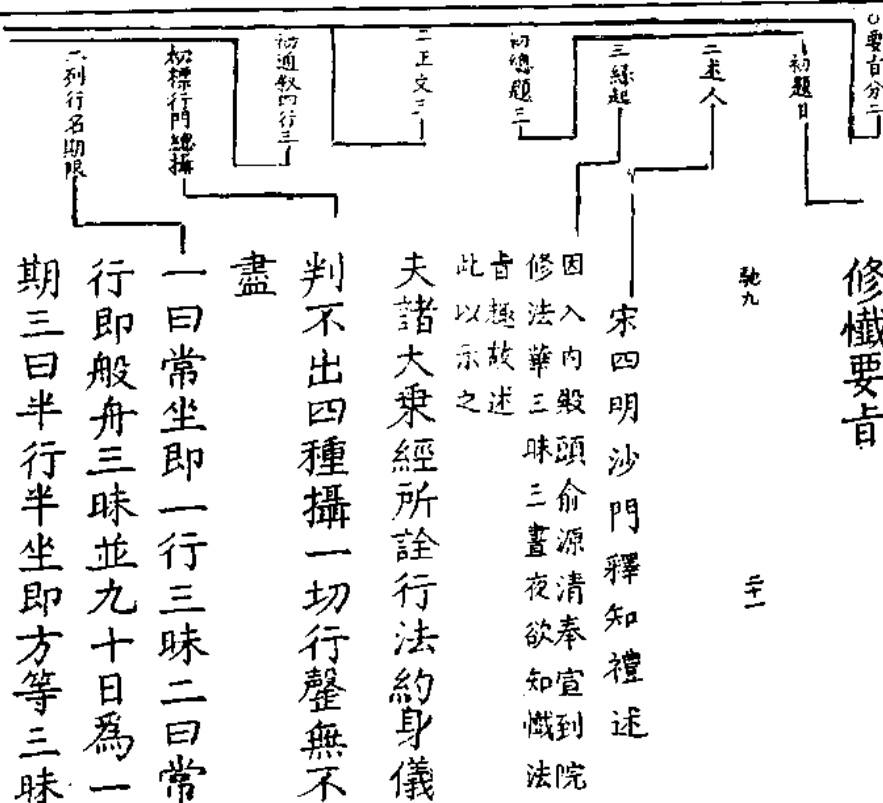 ○要旨分二
初題目
二述人
三緣起
初總題三
二正文三
初通敘四行三
初標行門總攝
二列行名期限
修懺要旨
馳九
二十一
宋四明沙門釋知禮述
因入内殿頭俞源清奉宣到院
修法華三昧三晝夜欲知懺法
旨趣故述
此以示之
夫諸大乗經所詮行法約身儀
判不出四種攝一切行罄無不
盡
一曰常坐即一行三昧二曰常
行即般舟三昧並九十日爲一
期三曰半行半坐即方等三昧